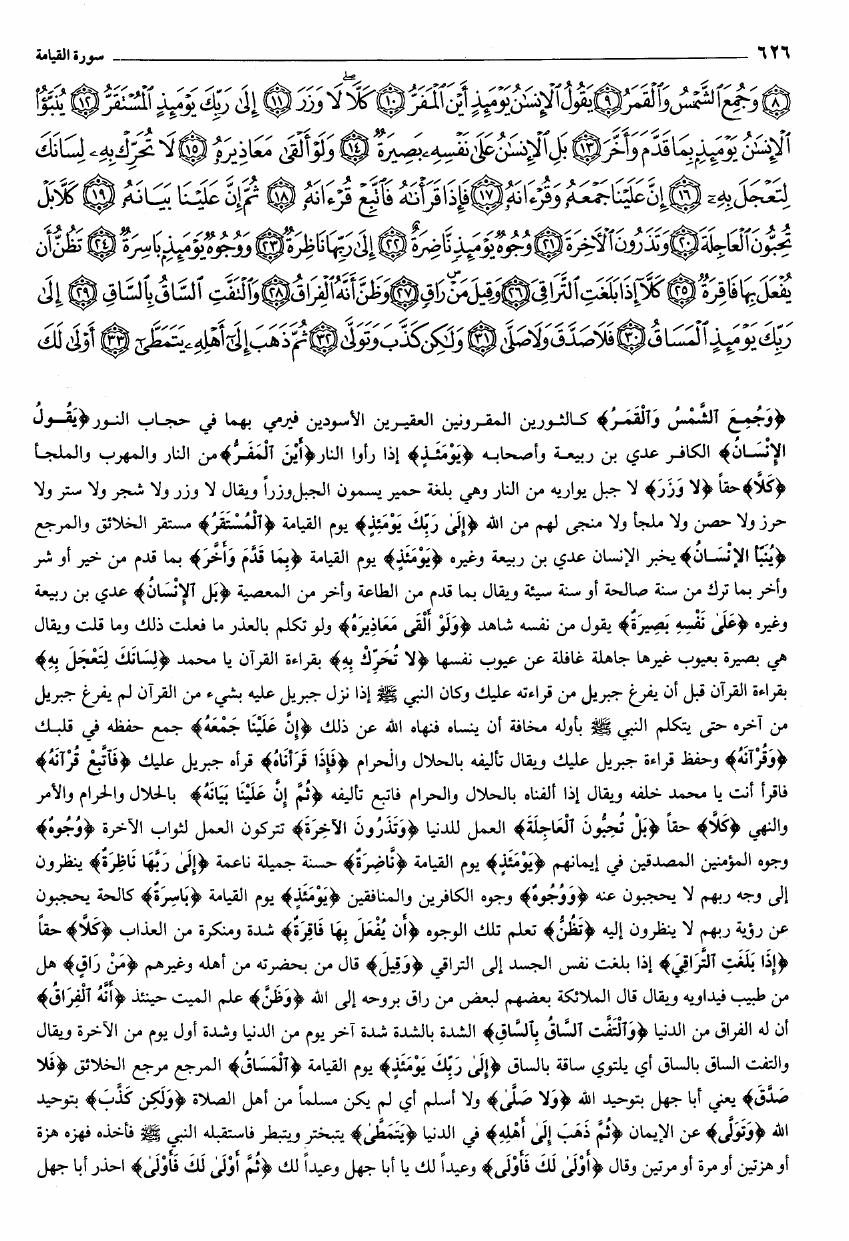 ٦٢٦ سورة القيامة
﴿٨﴾ وَجُمِعَ ٱلشَّمْسُ وَٱلْقَمَرُ ﴿٩﴾ يَقُولُ ٱلْإِنسَٰنُ يَوْمَئِذٍ أَيْنَ ٱلْمَفَرُّ ﴿١٠﴾ كَلَّا لَا وَزَرَ ﴿١١﴾ إِلَىٰ رَبِّكَ يَوْمَئِذٍ ٱلْمُسْتَقَرُّ ﴿١٢﴾ يُنَبَّؤُا۟
ٱلْإِنسَٰنُ يَوْمَئِذٍۭ بِمَا قَدَّمَ وَأَخَّرَ ﴿١٣﴾ بَلِ ٱلْإِنسَٰنُ عَلَىٰ نَفْسِهِۦ بَصِيرَةٌ ﴿١٤﴾ وَلَوْ أَلْقَىٰ مَعَاذِيرَهُۥ ﴿١٥﴾ لَا تُحَرِّكْ بِهِۦ لِسَانَكَ
لِتَعْجَلَ بِهِۦٓ ﴿١٦﴾ إِنَّ عَلَيْنَا جَمْعَهُۥ وَقُرْءَانَهُۥ ﴿١٧﴾ فَإِذَا قَرَأْنَٰهُ فَٱتَّبِعْ قُرْءَانَهُۥ ﴿١٨﴾ ثُمَّ إِنَّ عَلَيْنَا بَيَانَهُۥ ﴿١٩﴾ كَلَّا بَلْ
تُحِبُّونَ ٱلْعَاجِلَةَ ﴿٢٠﴾ وَتَذَرُونَ ٱلْءَاخِرَةَ ﴿٢١﴾ وُجُوهٌ يَوْمَئِذٍ نَّاضِرَةٌ ﴿٢٢﴾ إِلَىٰ رَبِّهَا نَاظِرَةٌ ﴿٢٣﴾ وَوُجُوهٌ يَوْمَئِذٍۭ بَاسِرَةٌ ﴿٢٤﴾ تَظُنُّ أَن
يُفْعَلَ بِهَا فَاقِرَةٌ ﴿٢٥﴾ كَلَّآ إِذَا بَلَغَتِ ٱلتَّرَاقِىَ ﴿٢٦﴾ وَقِيلَ مَنْ رَاقٍ ﴿٢٧﴾ وَظَنَّ أَنَّهُ ٱلْفِرَاقُ ﴿٢٨﴾ وَٱلْتَفَّتِ ٱلسَّاقُ بِٱلسَّاقِ ﴿٢٩﴾ إِلَىٰ
رَبِّكَ يَوْمَئِذٍ ٱلْمَسَاقُ ﴿٣٠﴾ فَلَا صَدَّقَ وَلَا صَلَّىٰ ﴿٣١﴾ وَلَٰكِن كَذَّبَ وَتَوَلَّىٰ ﴿٣٢﴾ ثُمَّ ذَهَبَ إِلَىٰٓ أَهْلِهِۦ يَتَمَطَّىٰٓ ﴿٣٣﴾ أَوْلَىٰ لَكَ
﴿وَجُمِعَ ٱلشَّمْسُ وَٱلْقَمَرُ﴾ كالثورين المقرونين العقيرين الأسودين فيرمي بهما في حجاب النور ﴿يَقُولُ
الإِنْسَانُ﴾ الكافر عدي بن ربيعة وأصحابه ﴿يَوْمَئِذٍ﴾ إذا رأوا النار ﴿أَيْنَ ٱلْمَفَرُّ﴾ من النار والمهرب والملجأ
﴿كَلَّا﴾ حقاً ﴿لَا وَزَرَ﴾ لا جبل يواريه من النار وهي بلغة حمير يسمون الجبل وزراً ويقال لا وزر ولا شجر ولا ستر ولا
حرز ولا حصن ولا ملجأ ولا منجى لهم من الله ﴿إِلَىٰ رَبِّكَ يَوْمَئِذٍ﴾ يوم القيامة ﴿ٱلْمُسْتَقَرُّ﴾ مستقر الخلائق والمرجع
﴿يُنَبَّأُ الإِنْسَانُ﴾ يخبر الإنسان عدي بن ربيعة وغيره ﴿يَوْمَئِذٍ﴾ يوم القيامة ﴿بِمَا قَدَّمَ وَأَخَّرَ﴾ بما قدم من خير أو شر
وأخر بما ترك من سنة صالحة أو سنة سيئة ويقال بما قدم من الطاعة وأخر من المعصية ﴿بَلِ ٱلإِنْسَانُ﴾ عدي بن ربيعة
وغيره ﴿عَلَىٰ نَفْسِهِ بَصِيرَةٌ﴾ يقول من نفسه شاهد ﴿وَلَوْ أَلْقَى مَعَاذِيرَهُ﴾ ولو تكلم بالعذر ما فعلت ذلك وما قلت ويقال
هي بصيرة بعيوب غيرها جاهلة غافلة عن عيوب نفسها ﴿لَا تُحَرِّكْ بِهِ﴾ بقراءة القرآن يا محمد ﴿لِسَانَكَ لِتَعْجَلَ بِهِ﴾
بقراءة القرآن قبل أن يفرغ جبريل من قراءته عليك وكان النبي ﷺ إذا نزل جبريل عليه بشيء من القرآن لم يفرغ جبريل
من آخره حتى يتكلم النبي ﷺ بأوله مخافة أن ينساه فنهاه الله عن ذلك ﴿إِنَّ عَلَيْنَا جَمْعَهُ﴾ جمع حفظه في قلبك
﴿وَقُرْآنَهُ﴾ وحفظ قراءة جبريل عليك ويقال تأليفه بالحلال والحرام ﴿فَإِذَا قَرَأْنَاهُ﴾ قرأه جبريل عليك ﴿فَٱتَّبِعْ قُرْآنَهُ﴾
فاقرأ أنت يا محمد خلفه ويقال إذا ألفناه بالحلال والحرام فاتبع تأليفه ﴿ثُمَّ إِنَّ عَلَيْنَا بَيَانَهُ﴾ بالحلال والحرام والأمر
والنهي ﴿كَلَّا﴾ حقاً ﴿بَلْ تُحِبُّونَ ٱلْعَاجِلَةَ﴾ العمل للدنيا ﴿وَتَذَرُونَ الآخِرَةَ﴾ تتركون العمل لثواب الآخرة ﴿وُجُوهٌ﴾
وجوه المؤمنين المصدقين في إيمانهم ﴿يَوْمَئِذٍ﴾ يوم القيامة ﴿نَّاضِرَةٌ﴾ حسنة جميلة ناعمة ﴿إِلَىٰ رَبِّهَا نَاظِرَةٌ﴾ ينظرون
إلى وجه ربهم لا يحجبون عنه ﴿وَوُجُوهٌ﴾ وجوه الكافرين والمنافقين ﴿يَوْمَئِذٍ﴾ يوم القيامة ﴿بَاسِرَةٌ﴾ كالحة يحجبون
عن رؤية ربهم لا ينظرون إليه ﴿تَظُنُّ﴾ تعلم تلك الوجوه ﴿أَن يُفْعَلَ بِهَا فَاقِرَةٌ﴾ شدة ومنكرة من العذاب ﴿كَلَّا﴾ حقاً
﴿إِذَا بَلَغَتِ ٱلتَّرَاقِيَ﴾ إذا بلغت نفس الجسد إلى التراقي ﴿وَقِيلَ﴾ قال من بحضرته من أهله وغيرهم ﴿مَنْ رَاقٍ﴾ هل
من طبيب فيداويه ويقال قال الملائكة بعضهم لبعض من راق بروحه إلى الله ﴿وَظَنَّ﴾ علم الميت حينئذ ﴿أَنَّهُ ٱلْفِرَاقُ﴾
أن له الفراق من الدنيا ﴿وَٱلْتَفَّتِ ٱلسَّاقُ بِٱلسَّاقِ﴾ الشدة بالشدة شدة آخر يوم من الدنيا وشدة أول يوم من الآخرة ويقال
والتفت الساق بالساق أي يلتوي ساقة بالساق ﴿إِلَىٰ رَبِّكَ يَوْمَئِذٍ﴾ يوم القيامة ﴿ٱلْمَسَاقُ﴾ المرجع مرجع الخلائق ﴿فَلَا
صَدَّقَ﴾ يعني أبا جهل بتوحيد الله ﴿وَلَا صَلَّىٰ﴾ ولا أسلم أي لم يكن مسلماً من أهل الصلاة ﴿وَلَكِن كَذَّبَ﴾ بتوحيد
الله ﴿وَتَوَلَّى﴾ عن الإيمان ﴿ثُمَّ ذَهَبَ إِلَىٰ أَهْلِهِ﴾ في الدنيا ﴿يَتَمَطَّىٰ﴾ يتبختر ويتبطر فاستقبله النبي ﷺ فأخذه فهزه هزة
أو هزتين أو مرة أو مرتين وقال ﴿أَوْلَىٰ لَكَ فَأَوْلَىٰ﴾ وعيداً لك يا أبا جهل وعيداً لك ﴿ثُمَّ أَوْلَىٰ لَكَ فَأَوْلَىٰ﴾ احذر أبا جهل